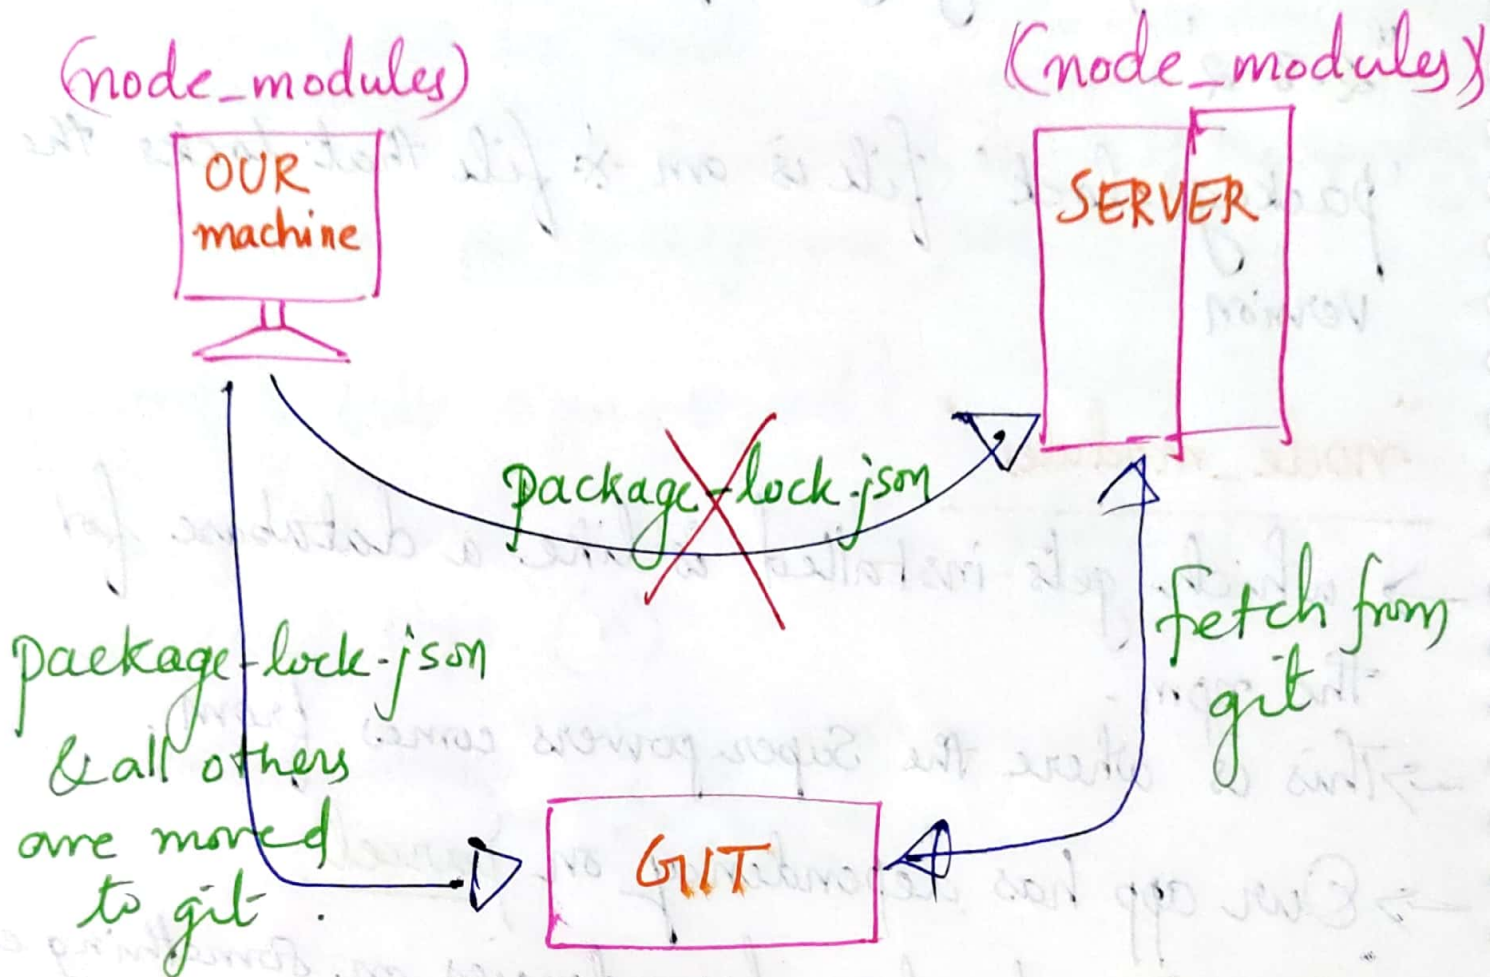 (node_modules)
(node_modules)
OUR
machine
SERVER
package-lock.json
package-lock.json
& all others
are moved
to git.
fetch from
git
GIT